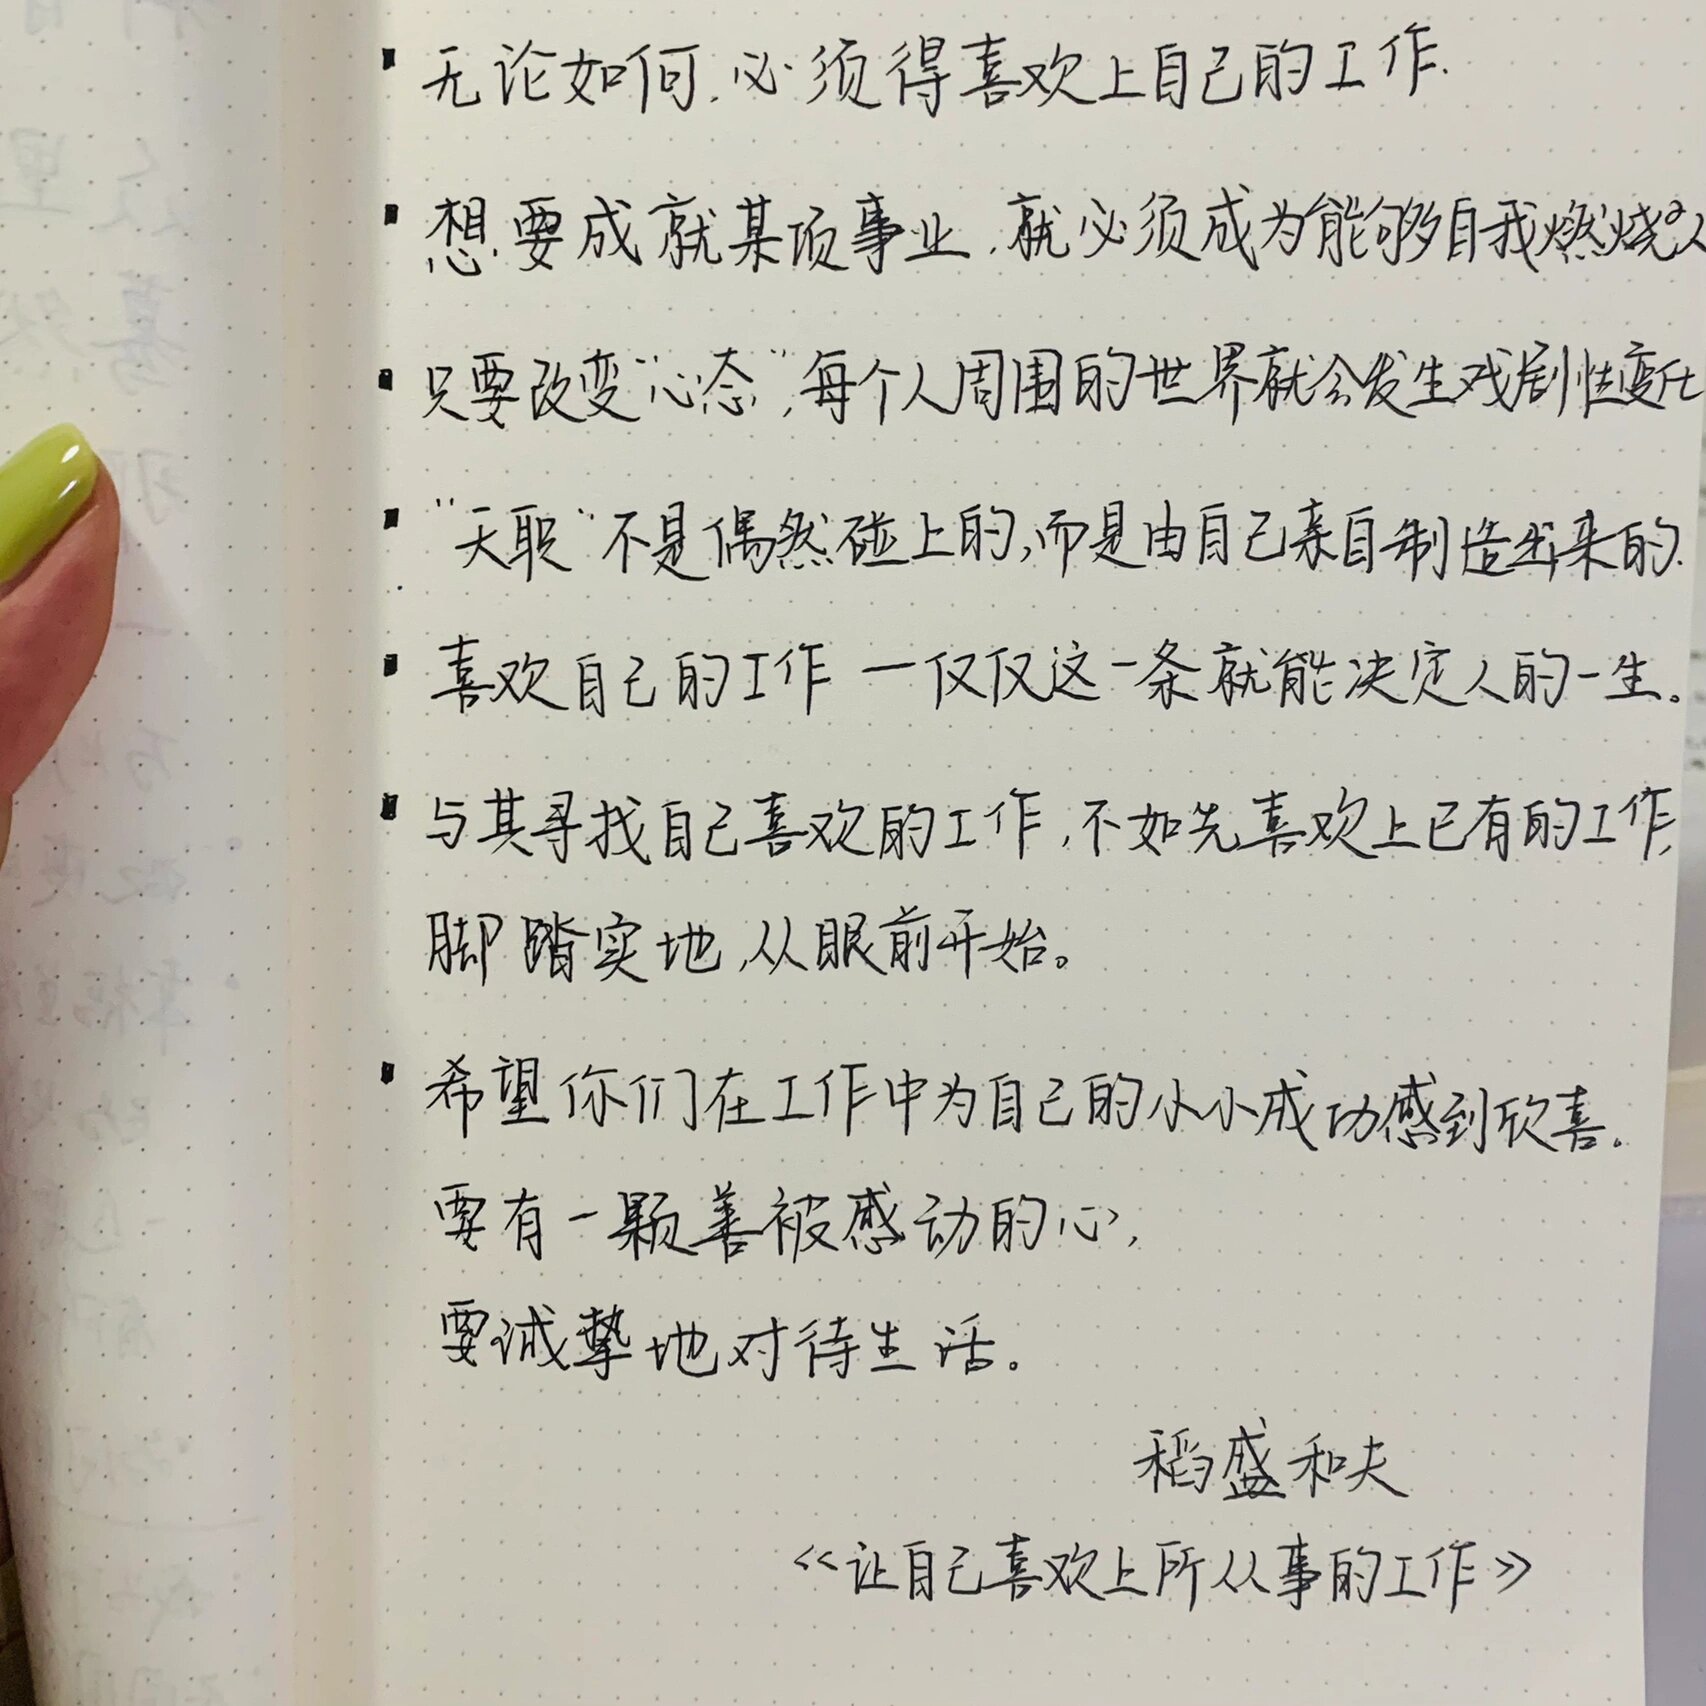 ▪ 无论如何,必须得喜欢上自己的工作.
▪ 想要成就某项事业,就必须成为能够自我燃烧的人
▪ 只要改变“心态”,每个人周围的世界就会发生戏剧性变化
▪ “天职”不是偶然碰上的,而是由自己亲自制造出来的.
▪ 喜欢自己的工作一仅仅这一条就能决定人的一生。
▪ 与其寻找自己喜欢的工作,不如先喜欢上已有的工作,
脚踏实地,从眼前开始。
▪ 希望你们在工作中为自己的小小成功感到欣喜.
要有一颗善被感动的心,
要诚挚地对待生活。
稻盛和夫
<<让自己喜欢上所从事的工作>>